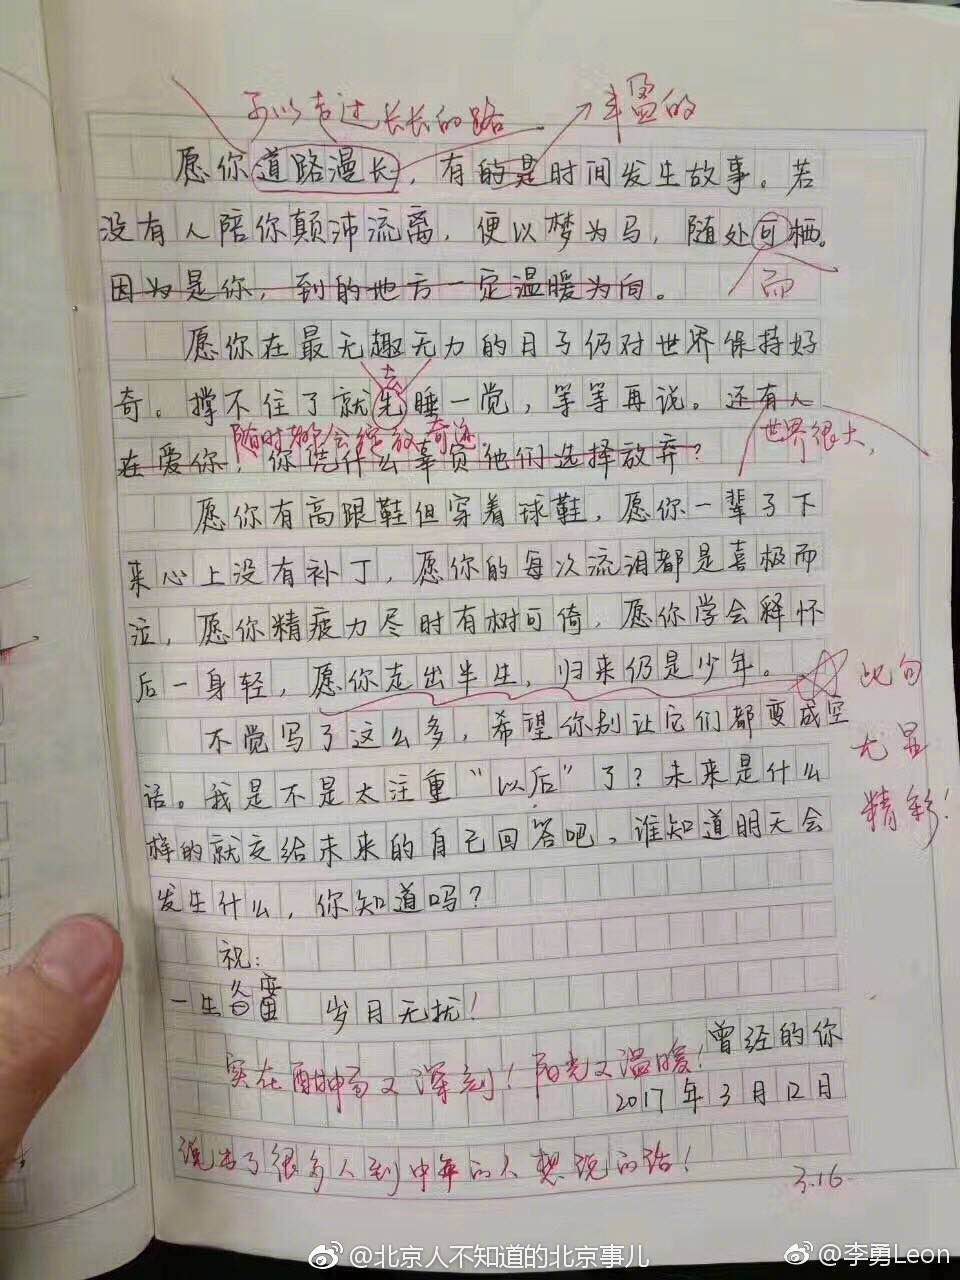 可以走过长长的路 丰盈的
愿你道路漫长，有的是时间发生故事。若
没有人陪你颠沛流离，便以梦为马，随处可栖。
因为是你，到的地方一定温暖为向。 而
愿你在最无趣无力的日子仍对世界保持好
去
奇。撑不住了就先睡一觉，等等再说。还有人
随时都会绽放奇迹 世界很大，
在爱你，你凭什么辜负他们选择放弃？
愿你有高跟鞋但穿着球鞋，愿你一辈子下
来心上没有补丁，愿你的每次流泪都是喜极而
泣，愿你精疲力尽时有树可倚，愿你学会释怀
后一身轻，愿你走出半生，归来仍是少年。 此句
不觉写了这么多，希望你别让它们都变成空 尤显
话。我是不是太注重“以后”了？未来是什么 精彩！
样的就交给未来的自己回答吧。谁知道明天会
发生什么，你知道吗？
祝：
一生 岁月无扰！
曾经的你
实在 又深刻！阳光又温暖！
2017年3月12日
说出了很多人到中年的 想说的话！
3.16
@北京人不知道的北京事儿 @李勇Leon